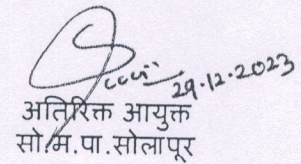 29.12.2023
अतिरिक्त आयुक्त
सो.म.पा.सोलापूर